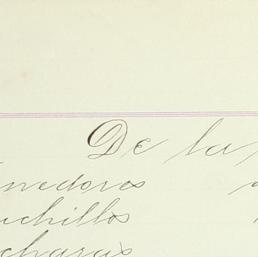 De la
nedores
uchillos
charas